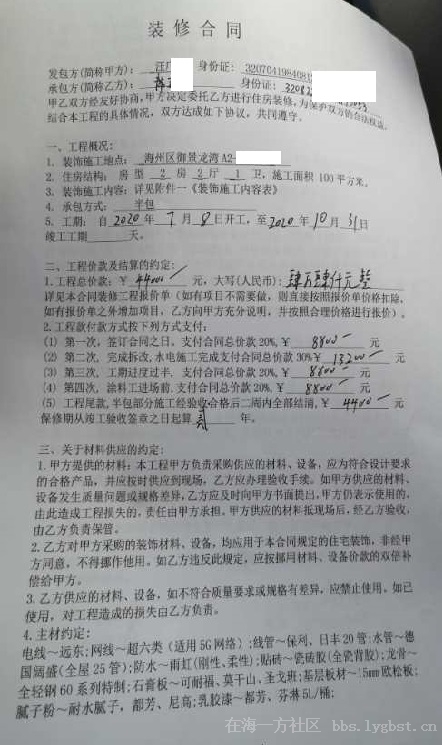 装修合同
发包方(简称甲方): 汪 身份证: 3207041984081
承包方(简称乙方): 身份证: 3208
甲乙双方经友好协商,甲方决定委托乙方进行住房装修,为保护双方的合法权益,
结合本工程的具体情况,双方达成如下协议,共同遵守。
一、工程概况:
1. 装饰施工地点: 海州区御景龙湾A2-
2. 住房结构: 房型 2 房 2 厅 1 卫,施工面积 100平方米。
3. 装饰施工内容: 详见附件一《装饰施工内容表》
4. 承包方式: 半包
5. 工期: 自 2020 年 7 月 8 日开工,至 2020 年 10 月 31 日
竣工工期 天。
二、工程价款及结算的约定:
1. 工程总价款: ¥ 44000 元,大写(人民币): 肆万肆仟元整
详见本合同装修工程报价单(如有项目不需要做,则直接按照报价单价格扣除,
如有报价单之外增加项目,乙方向甲方充分说明,并按照合理价格进行报价)。
2. 工程款付款方式按下列方式支付:
(1) 第一次,签订合同之日,支付合同总价款 20%,¥ 8800 元
(2) 第二次,完成拆改,水电施工完成支付合同总价款 30%¥ 13200 元
(3) 第三次,工期过度过半.支付合同总价款 20%.¥ 8800 元
(4) 第四次,涂料工进场前.支付合同总价款 20%.¥ 8800 元
(5) 工程尾款,半包部分施工经验收合格后二周内全部结清,¥ 4400 元
保修期从竣工验收签章之日起算 贰 年。
三、关于材料供应的约定:
1. 甲方提供的材料: 本工程甲方负责采购供应的材料、设备,应为符合设计要求
的合格产品,并应按时供应到现场,乙方应办理验收手续。如甲方供应的材料、
设备发生质量问题或规格差异,乙方应及时向甲方书面提出,甲方仍表示使用的,
由此造成工程损失的,责任由甲方承担。甲方供应的材料抵现场后,经乙方验收,
由乙方负责保管。
2. 乙方对甲方采购的装饰材料、设备,均应用于本合同规定的住宅装饰,非经甲
方同意,不得挪作他用。如乙方违反此规定,应按挪用材料、设备价款的双倍补
偿给甲方。
3. 乙方供应的材料、设备,如不符合质量要求或规格有差异,应禁止使用。如已
使用,对工程造成的损失由乙方负责。
4. 主材约定:
电线~远东;网线~超六类(适用5G网络);线管~保利,日丰20管:水管~德
国瓯盛(全屋25管);防水~雨虹(刚性,柔性);贴砖~瓷砖胶(全瓷背胶);龙骨~
全轻钢60系列特制;石膏板~可耐福、莫干山,圣戈班;基层板材~15mm欧松板;
腻子粉~耐水腻子,都芳、尼高;乳胶漆~都芳、芬琳5L/桶;
在海一方社区 bbs.lygbst.cn